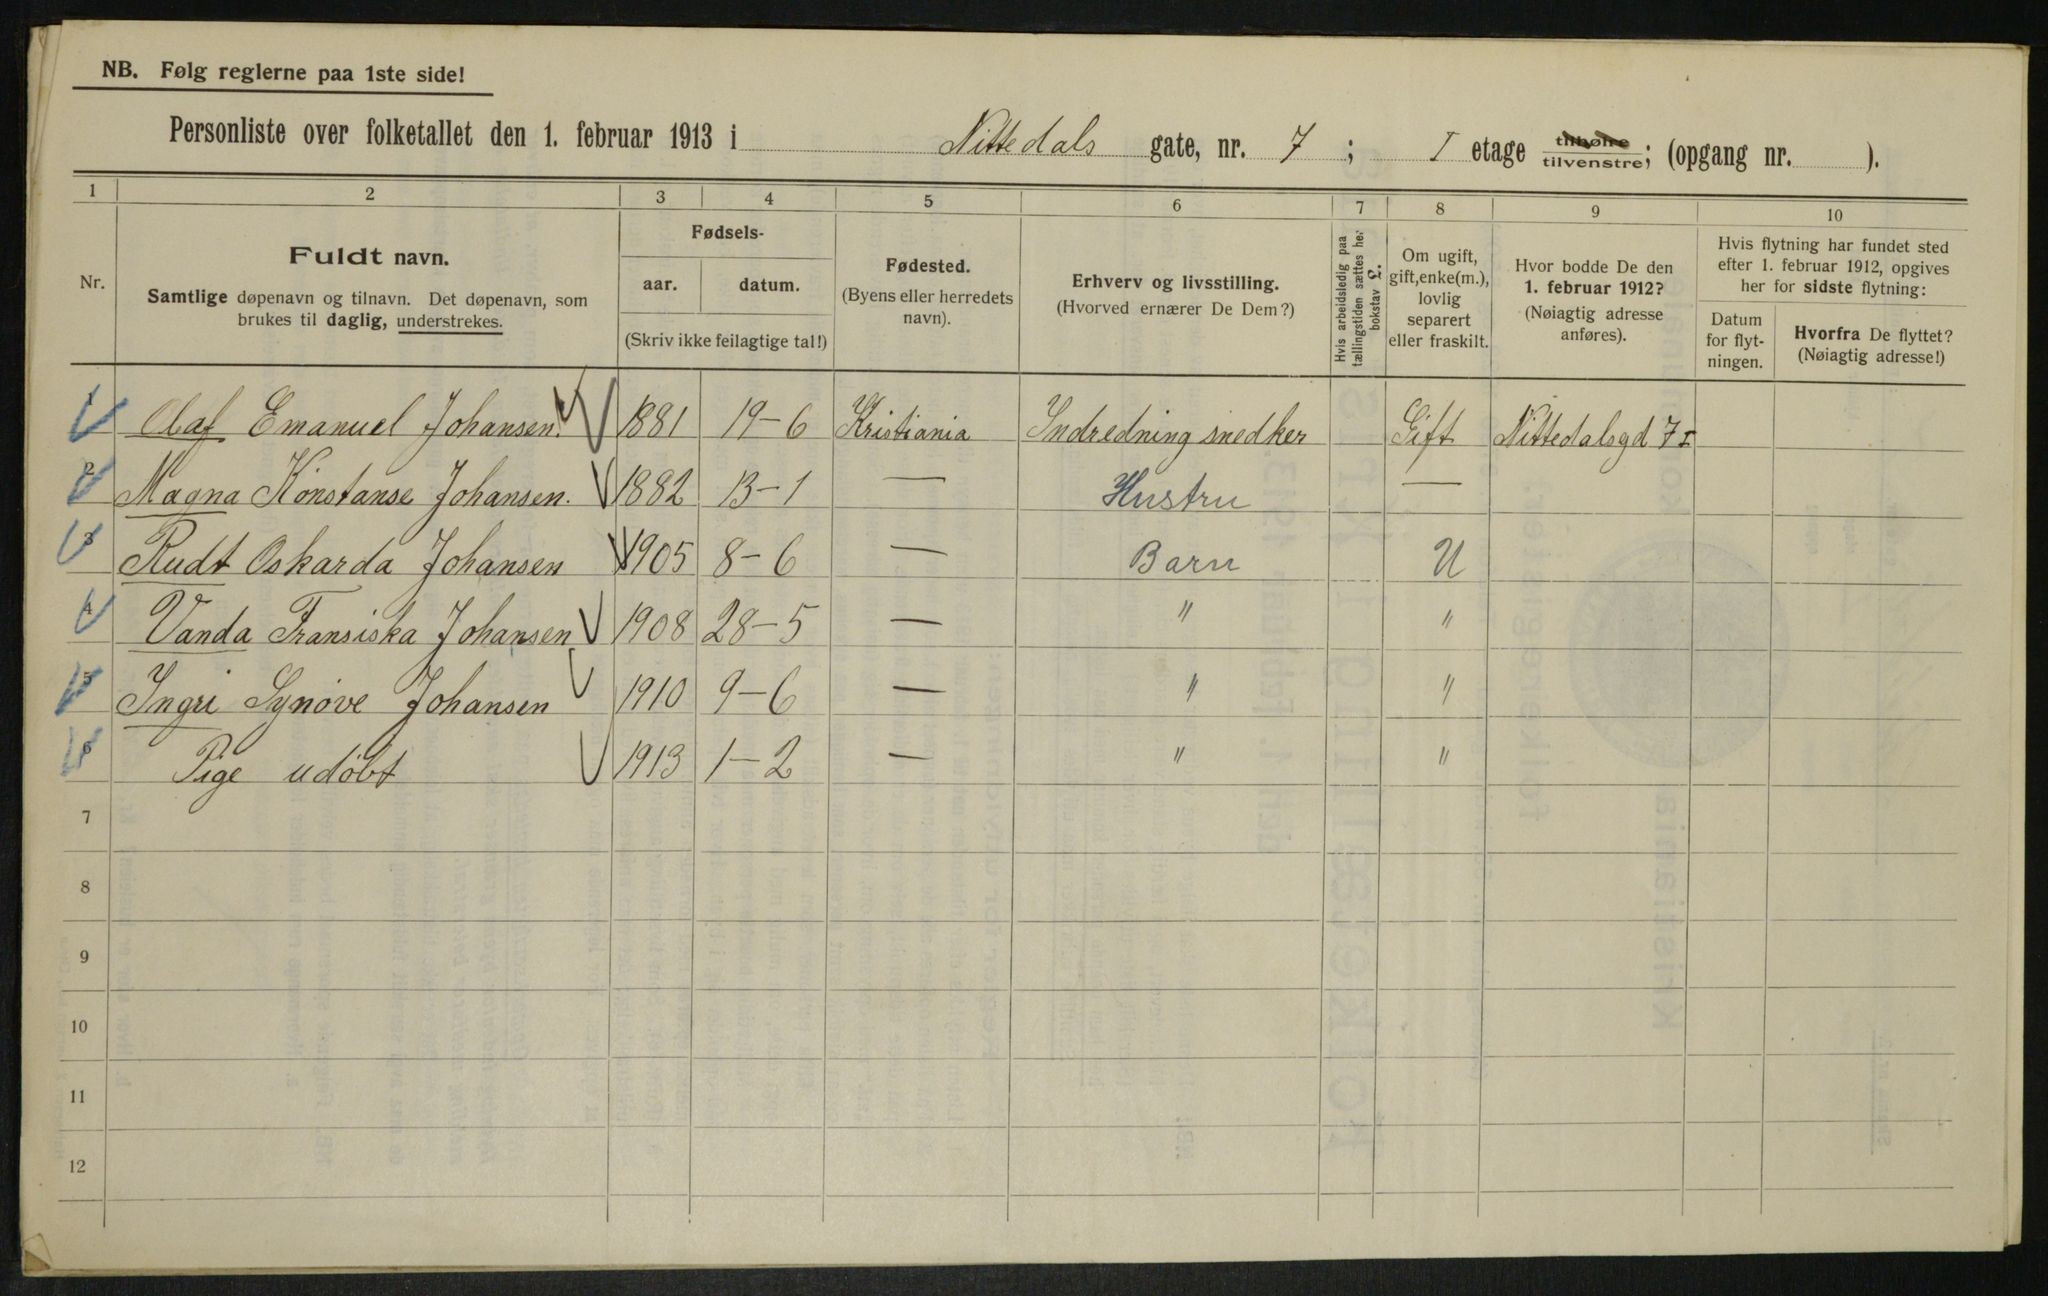 NB. Følg reglerne paa 1ste side!
Personliste over folketallet den 1. februar 1913 i Nittedals gate, nr. 7; I etage tilhøire tilvenstre; (opgang nr. ).
1 2 3 4 5 6 7 8 9 10
Nr.
Fuldt navn.
Samtlige døpenavn og tilnavn. Det døpenavn, som
brukes til daglig, understrekes.
Fødsels-
aar. datum.
(Skriv ikke feilagtige tal!)
Fødested.
(Byens eller herredets
navn).
Erhverv og livsstilling.
(Hvorved ernærer De Dem?)
Hvis arbeidsledig paa
tællingstiden sættes her
bokstav L.
Om ugift,
gift, enke(m.),
lovlig
separert
eller fraskilt.
Hvor bodde De den
1. februar 1912?
(Nøiagtig adresse
anføres).
Hvis flytning har fundet sted
efter 1. februar 1912, opgives
her for sidste flytning:
Datum
for flyt-
ningen.
Hvorfra De flyttet?
(Nøiagtig adresse!)
1 Olaf Emanuel Johansen. 1881 19-6 Kristiania Indredning snedker Gift Nittedalsgd 7 I
2 Magna Konstanse Johansen. 1882 13-1 — Hustru —
3 Rudt Oskarda Johansen 1905 8-6 — Barn U
4 Vanda Fransiska Johansen 1908 28-5 — " "
5 Ingri Synøve Johansen 1910 9-6 — " "
6 Pige udøbt 1913 1-2 — " "
7
8
9
10
11
12